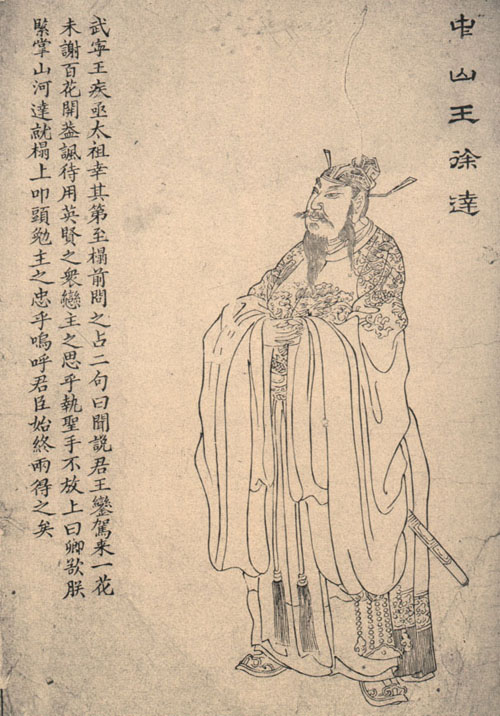 中山王徐達
武寧王疾亟太祖幸其第至榻前問之占二句曰聞說君王鑾駕来一花
未謝百花開葢諷待用英賢之衆戀主之思乎執聖手不放上曰卿欲朕
緊掌山河達就榻上叩頭勉主之忠乎嗚呼君臣始終兩得之矣